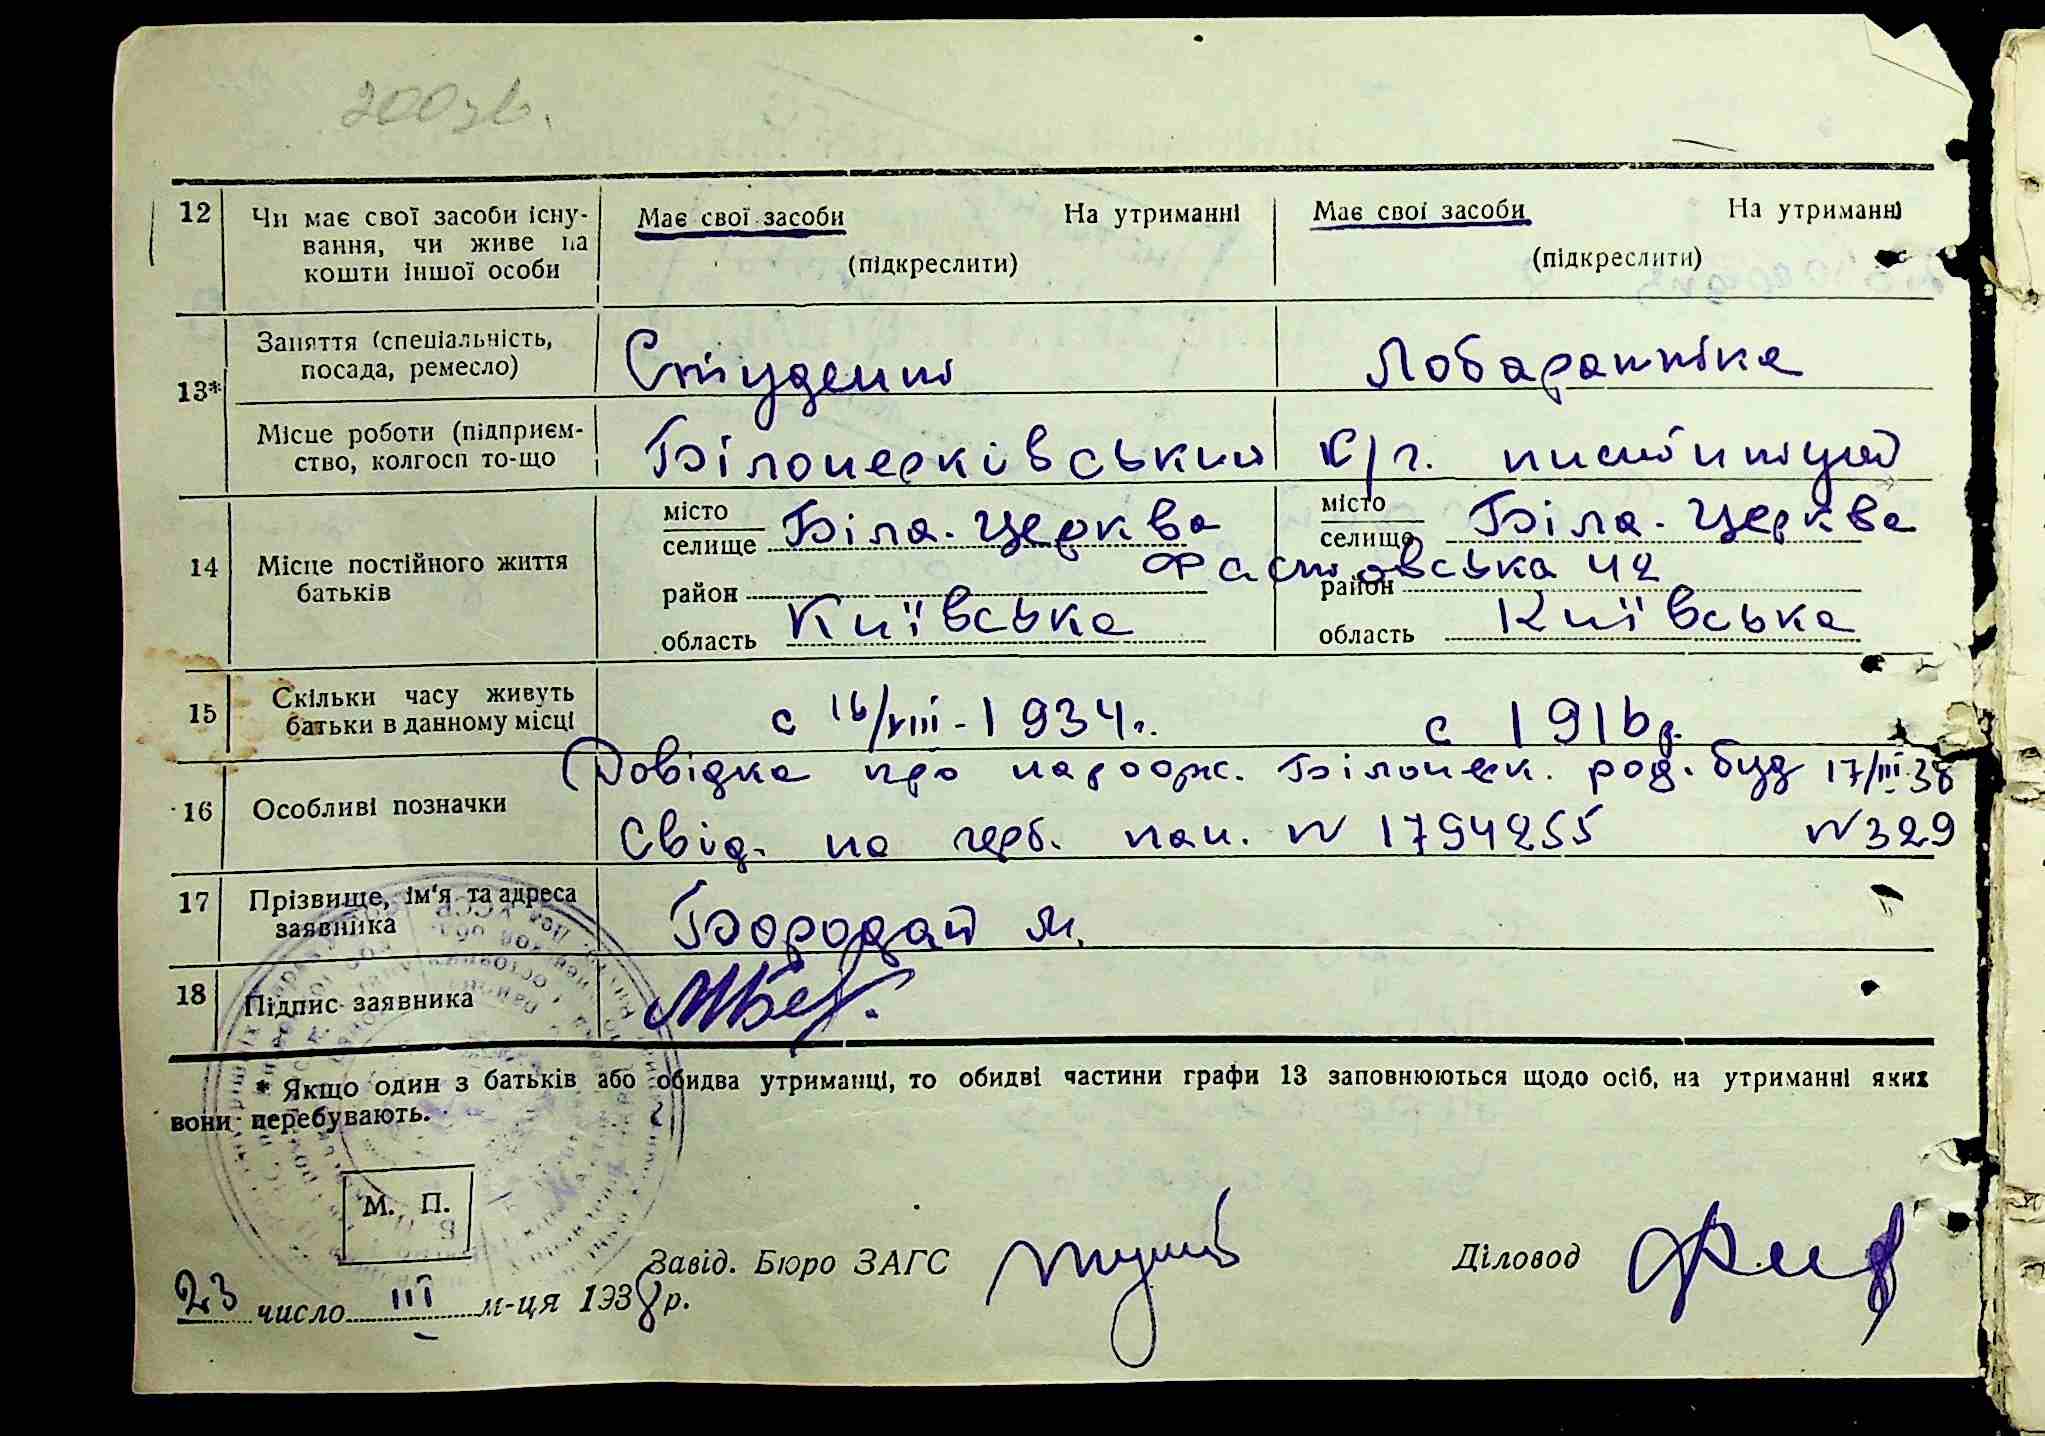 200зв.
12 Чи має свої засоби існу- Має свої засоби На утриманні Має свої засоби На утриманні
вання, чи живе на
кошти іншої особи (підкреслити) (підкреслити)
13* Заняття (спеціальність, Студент Лобарантка
посада, ремесло)
Місце роботи (підприєм- Білоцерківський с/г. институт
ство, колгосп то-що
14 Місце постійного життя батьків
місто місто
селище Біла-Церква селище Біла-Церква
Фастовська 42
район район
область Київська область Київська
15 Скільки часу живуть с 16/VIII-1934г. с 1916р.
батьки в данному місці
16 Особливі позначки Довідка про народж. Білоцерк. род. буд 17/III-38
Свід. на герб. пап. № 1794255 №329
17 Прізвище, ім'я та адреса Бородай М.
заявника
18 Підпис заявника
* Якщо один з батьків або обидва утриманці, то обидві частини графи 13 заповнюються щодо осіб, на утриманні яких
вони перебувають.
М. П.
Завід. Бюро ЗАГС Діловод
23 число III м-ця 1938 р.